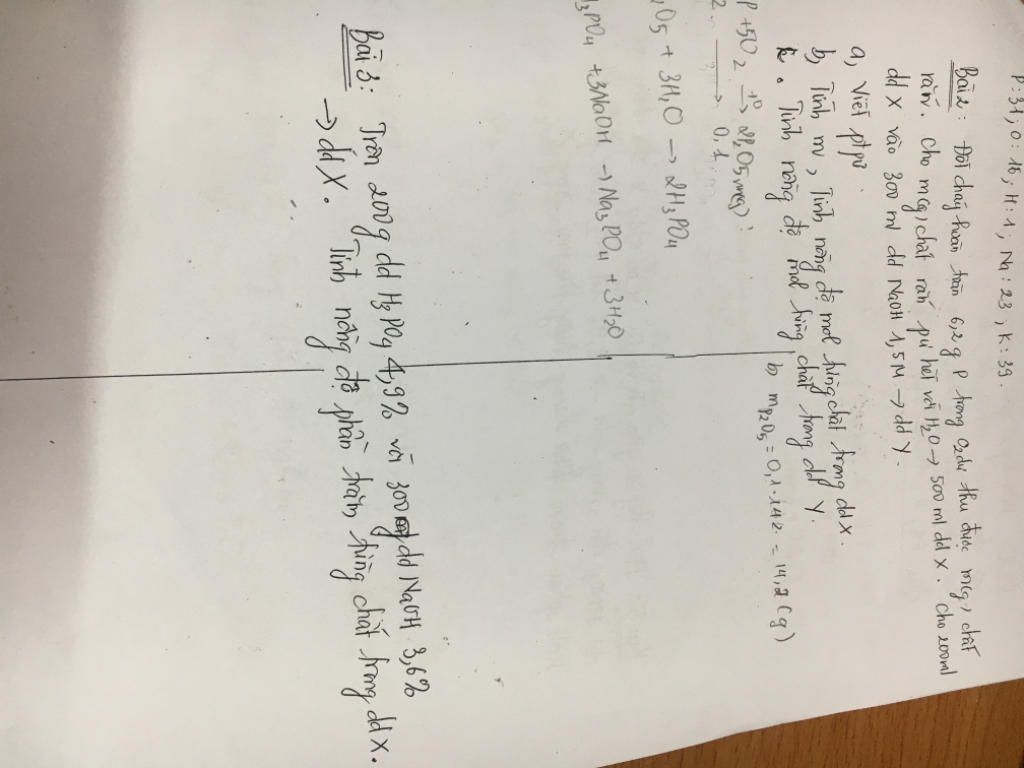 P:31, O:16, H:1, Na:23, K:39.
Bài 2: Đốt cháy hoàn toàn 6,2 g P trong O2 dư thu được m(g) chất
rắn. Cho m(g) chất rắn pứ hết với H2O → 500 ml dd X. Cho 200ml
dd X vào 300 ml dd NaOH 1,5M → dd Y.
a, Viết ptpứ.
b, Tính m, Tính nồng độ mol từng chất trong dd X.
c. Tính nồng độ mol từng chất trong dd Y.
P + 5O2 → 2P2O5 m(g)
0,1
b, mP2O5 = 0,1.142 = 14,2 (g)
2O5 + 3H2O → 2H3PO4
H3PO4 + 3NaOH → Na3PO4 + 3H2O
Bài 3: Trộn 200g dd H3PO4 4,9% với 300g dd NaOH 3,6%
→ dd X. Tính nồng độ phần trăm từng chất trong dd X.